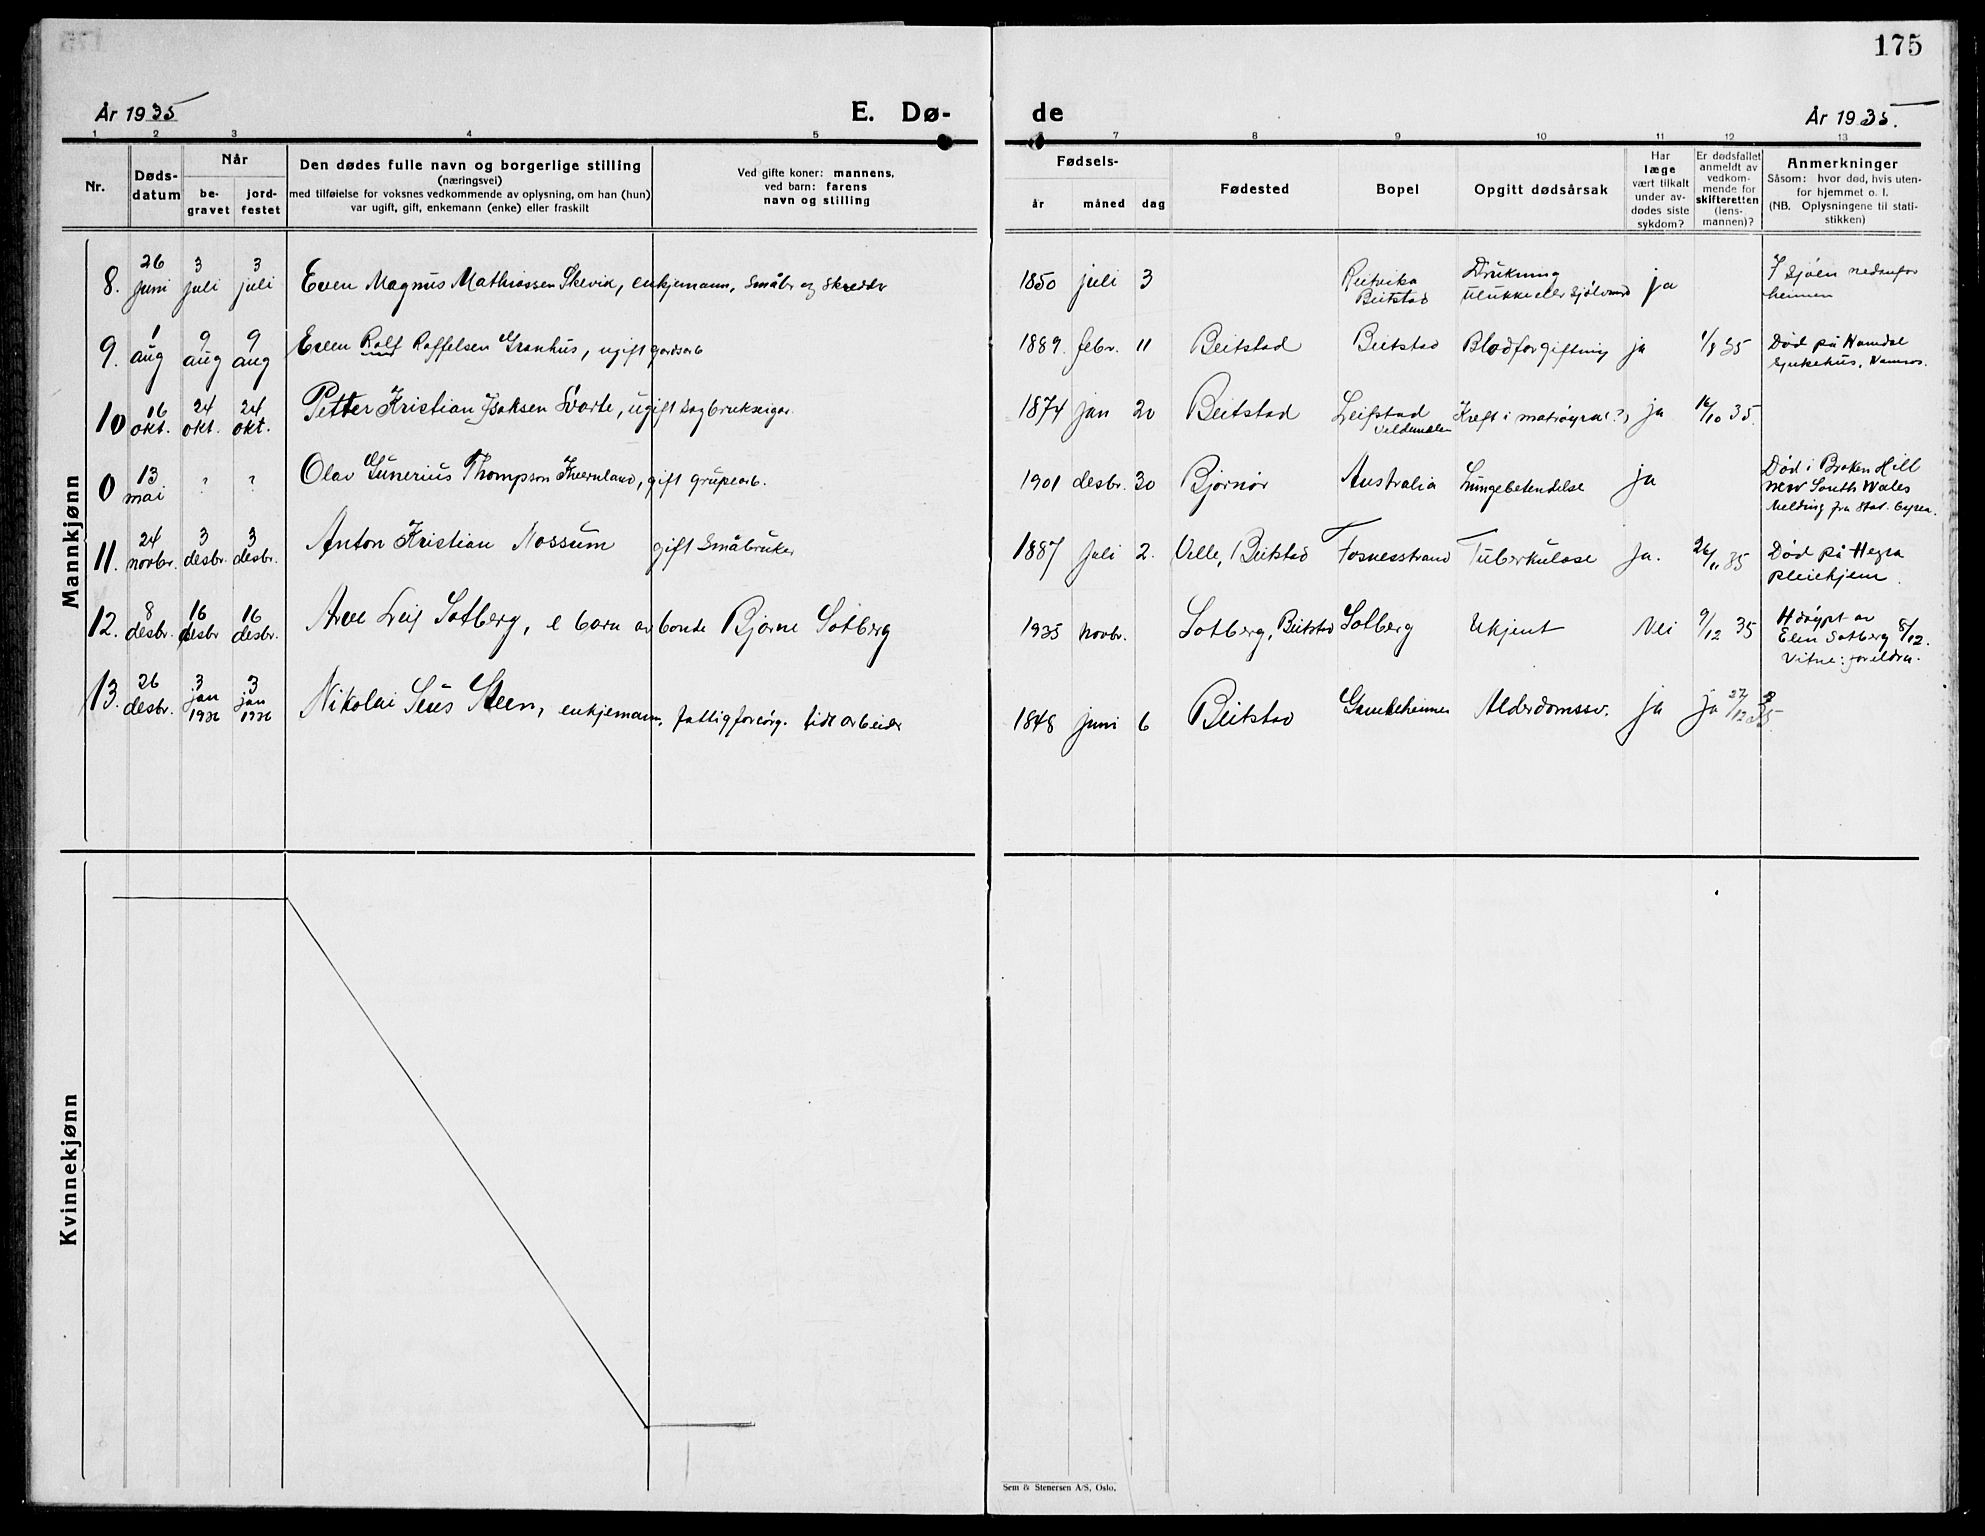 175
År 1935
E. Dø-
de
År 1935.
1 2 3 4 5 6 7 8 9 10 11 12 13
Nr.
Døds-
datum
Når
be-
gravet
jord-
festet
Den dødes fulle navn og borgerlige stilling
(næringsvei)
med tilføielse for voksnes vedkommende av oplysning, om han (hun)
var ugift, gift, enkemann (enke) eller fraskilt
Ved gifte koner: mannens,
ved barn: farens
navn og stilling
Fødsels-
år måned dag
Fødested
Bopel
Opgitt dødsårsak
Har
læge
vært tilkalt
under av-
dødes siste
sykdom?
Er dødsfallet
anmeldt av
vedkom-
mende for
skifteretten
(lens-
mannen)?
Anmerkninger
Såsom: hvor død, hvis uten-
for hjemmet o. l.
(NB. Oplysningene til stati-
stikken)
Mannkjønn
8. 26 juni 3 juli 3 juli Even Magnus Mathiassen Skevik, enkjemann, småbr og skredder 1850 juli 3
Beitstad
Drukning
ja
I sjøen nedanfor
heimen
9. 1 aug 9 aug 9 aug Even Rolf Roffelsen Granhus, ugift gardsarb 1889. febr. 11 Beitstad Beitstad Blodforgiftning ja 1/8 35
Død på Namdal
sjukehus, Namsos.
10 16 okt. 24 okt. 24 okt. Petter Kristian Isaksen Svarte, ugift sagbrukseigar. 1874 jan 20 Beitstad Leifstad
Kreft i ja 16/10 35.
0 13 mai ? ? Olav Gunerius Thompson Kvernland, gift grupearb. 1901 desbr. 30 Bjørnør Australia Lungebetendelse ja
Død i Broken Hill
New South Wales
Melding fra Stat.
11. 24 novbr. 3 desbr. 3 desbr. Anton Kristian Nossum gift småbruker 1887 juli 2. Velle, Beitstad Fosnesstrand Tuberkulose Ja. 26/11 35
Død på Hegra
pleiehjem.
12. 8 desbr. 16 desbr 16 desbr. Arve Leif Solberg, e barn av bonde Bjørne Solberg 1935 novbr. Solberg, Beitstad Solberg Ukjent Nei 9/12 35
H.døypt av
Elen Solberg 8/12.
Vitne: foreldra.
13. 26 desbr. 3 jan 1936 3 jan 1936 Nikolai Steen, enkjemann, fattigforsørg. fidt arbeider 1848 juni 6 Beitstad Gamleheimen Alderdomssv. ja ja 27/12 35.
Kvinnekjønn
Sem & Stenersen A/S, Oslo.